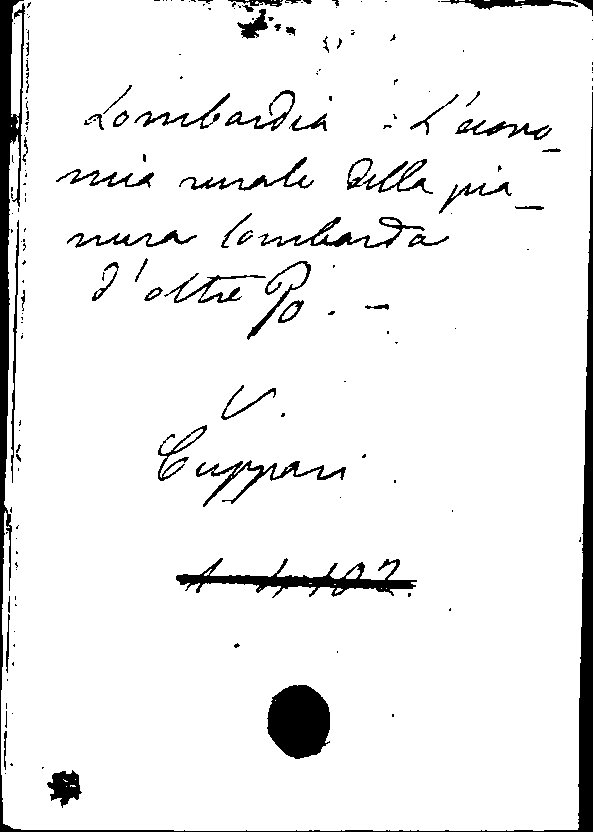 Lombardia : L'econo_
mia rurale della pia_
nura lombarda
d'oltre Po. -
V.
Cuppari